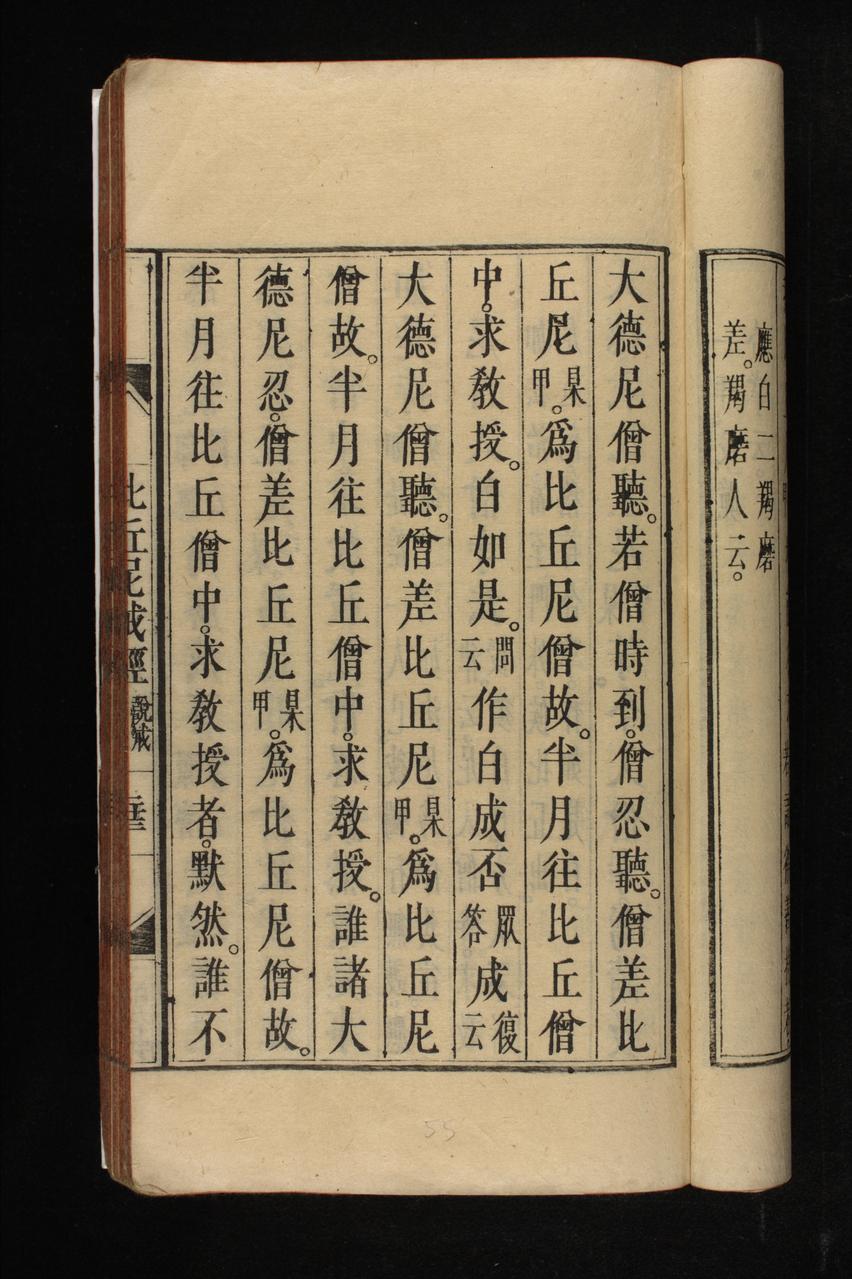 應白二羯磨
差。羯磨人云。
大德尼僧聽。若僧時到。僧忍聽。僧差比
丘尼某甲。爲比丘尼僧故。半月往比丘僧
中。求敎授。白如是。問云作白成否眾答成復云
大德尼僧聽。僧差比丘尼某甲。爲比丘尼
僧故。半月往比丘僧中。求敎授。誰諸大
德尼忍。僧差比丘尼某甲。爲比丘尼僧故。
半月往比丘僧中。求敎授者。默然。誰不
比丘尼戒經 說戒
55